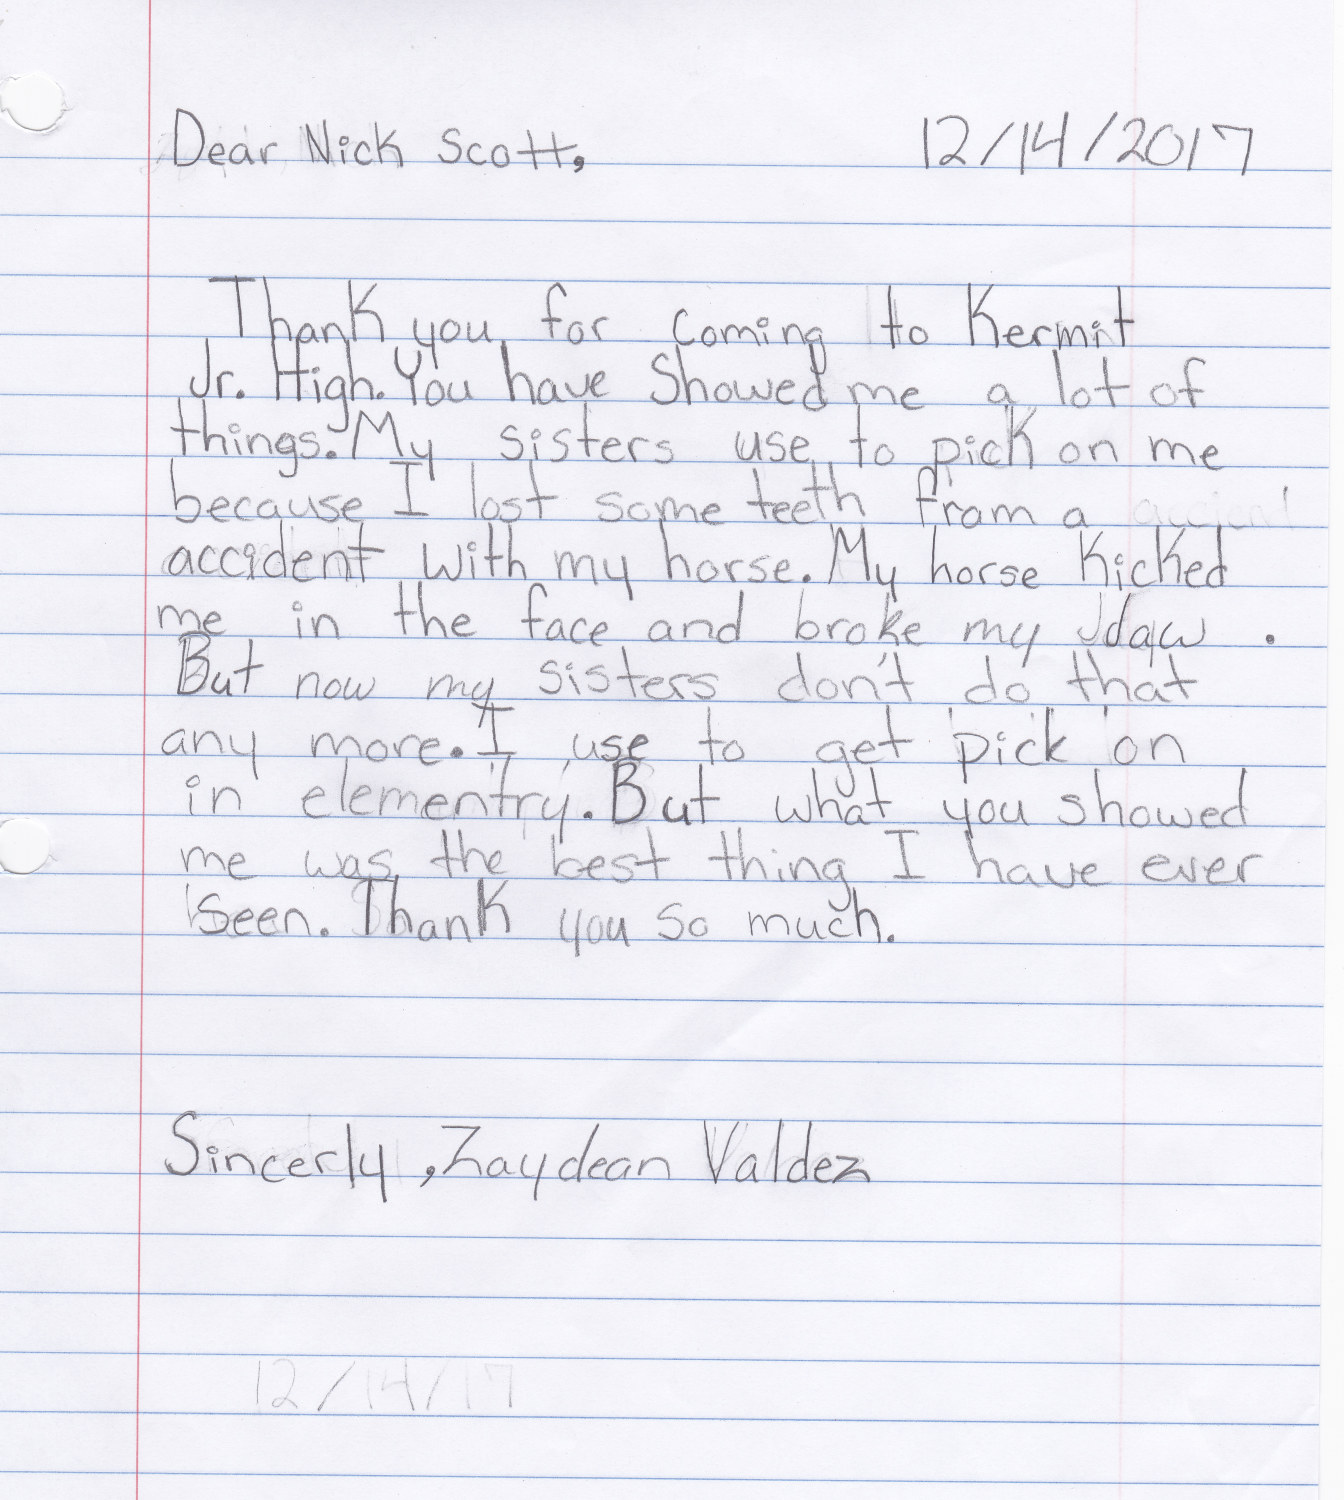 Dear Nick Scott, 12/14/2017
Thank you for coming to Kermit
Jr. High. You have Showed me a lot of
things. My sisters use to pick on me
because I lost some teeth from a accient
accident with my horse. My horse Kicked
me in the face and broke my Jdaw .
But now my sisters don't do that
any more. I use to get pick on
in elementry. But what you showed
me was the best thing I have ever
Seen. Thank you so much.
Sincerly , Zaydean Valdez
12/14/17